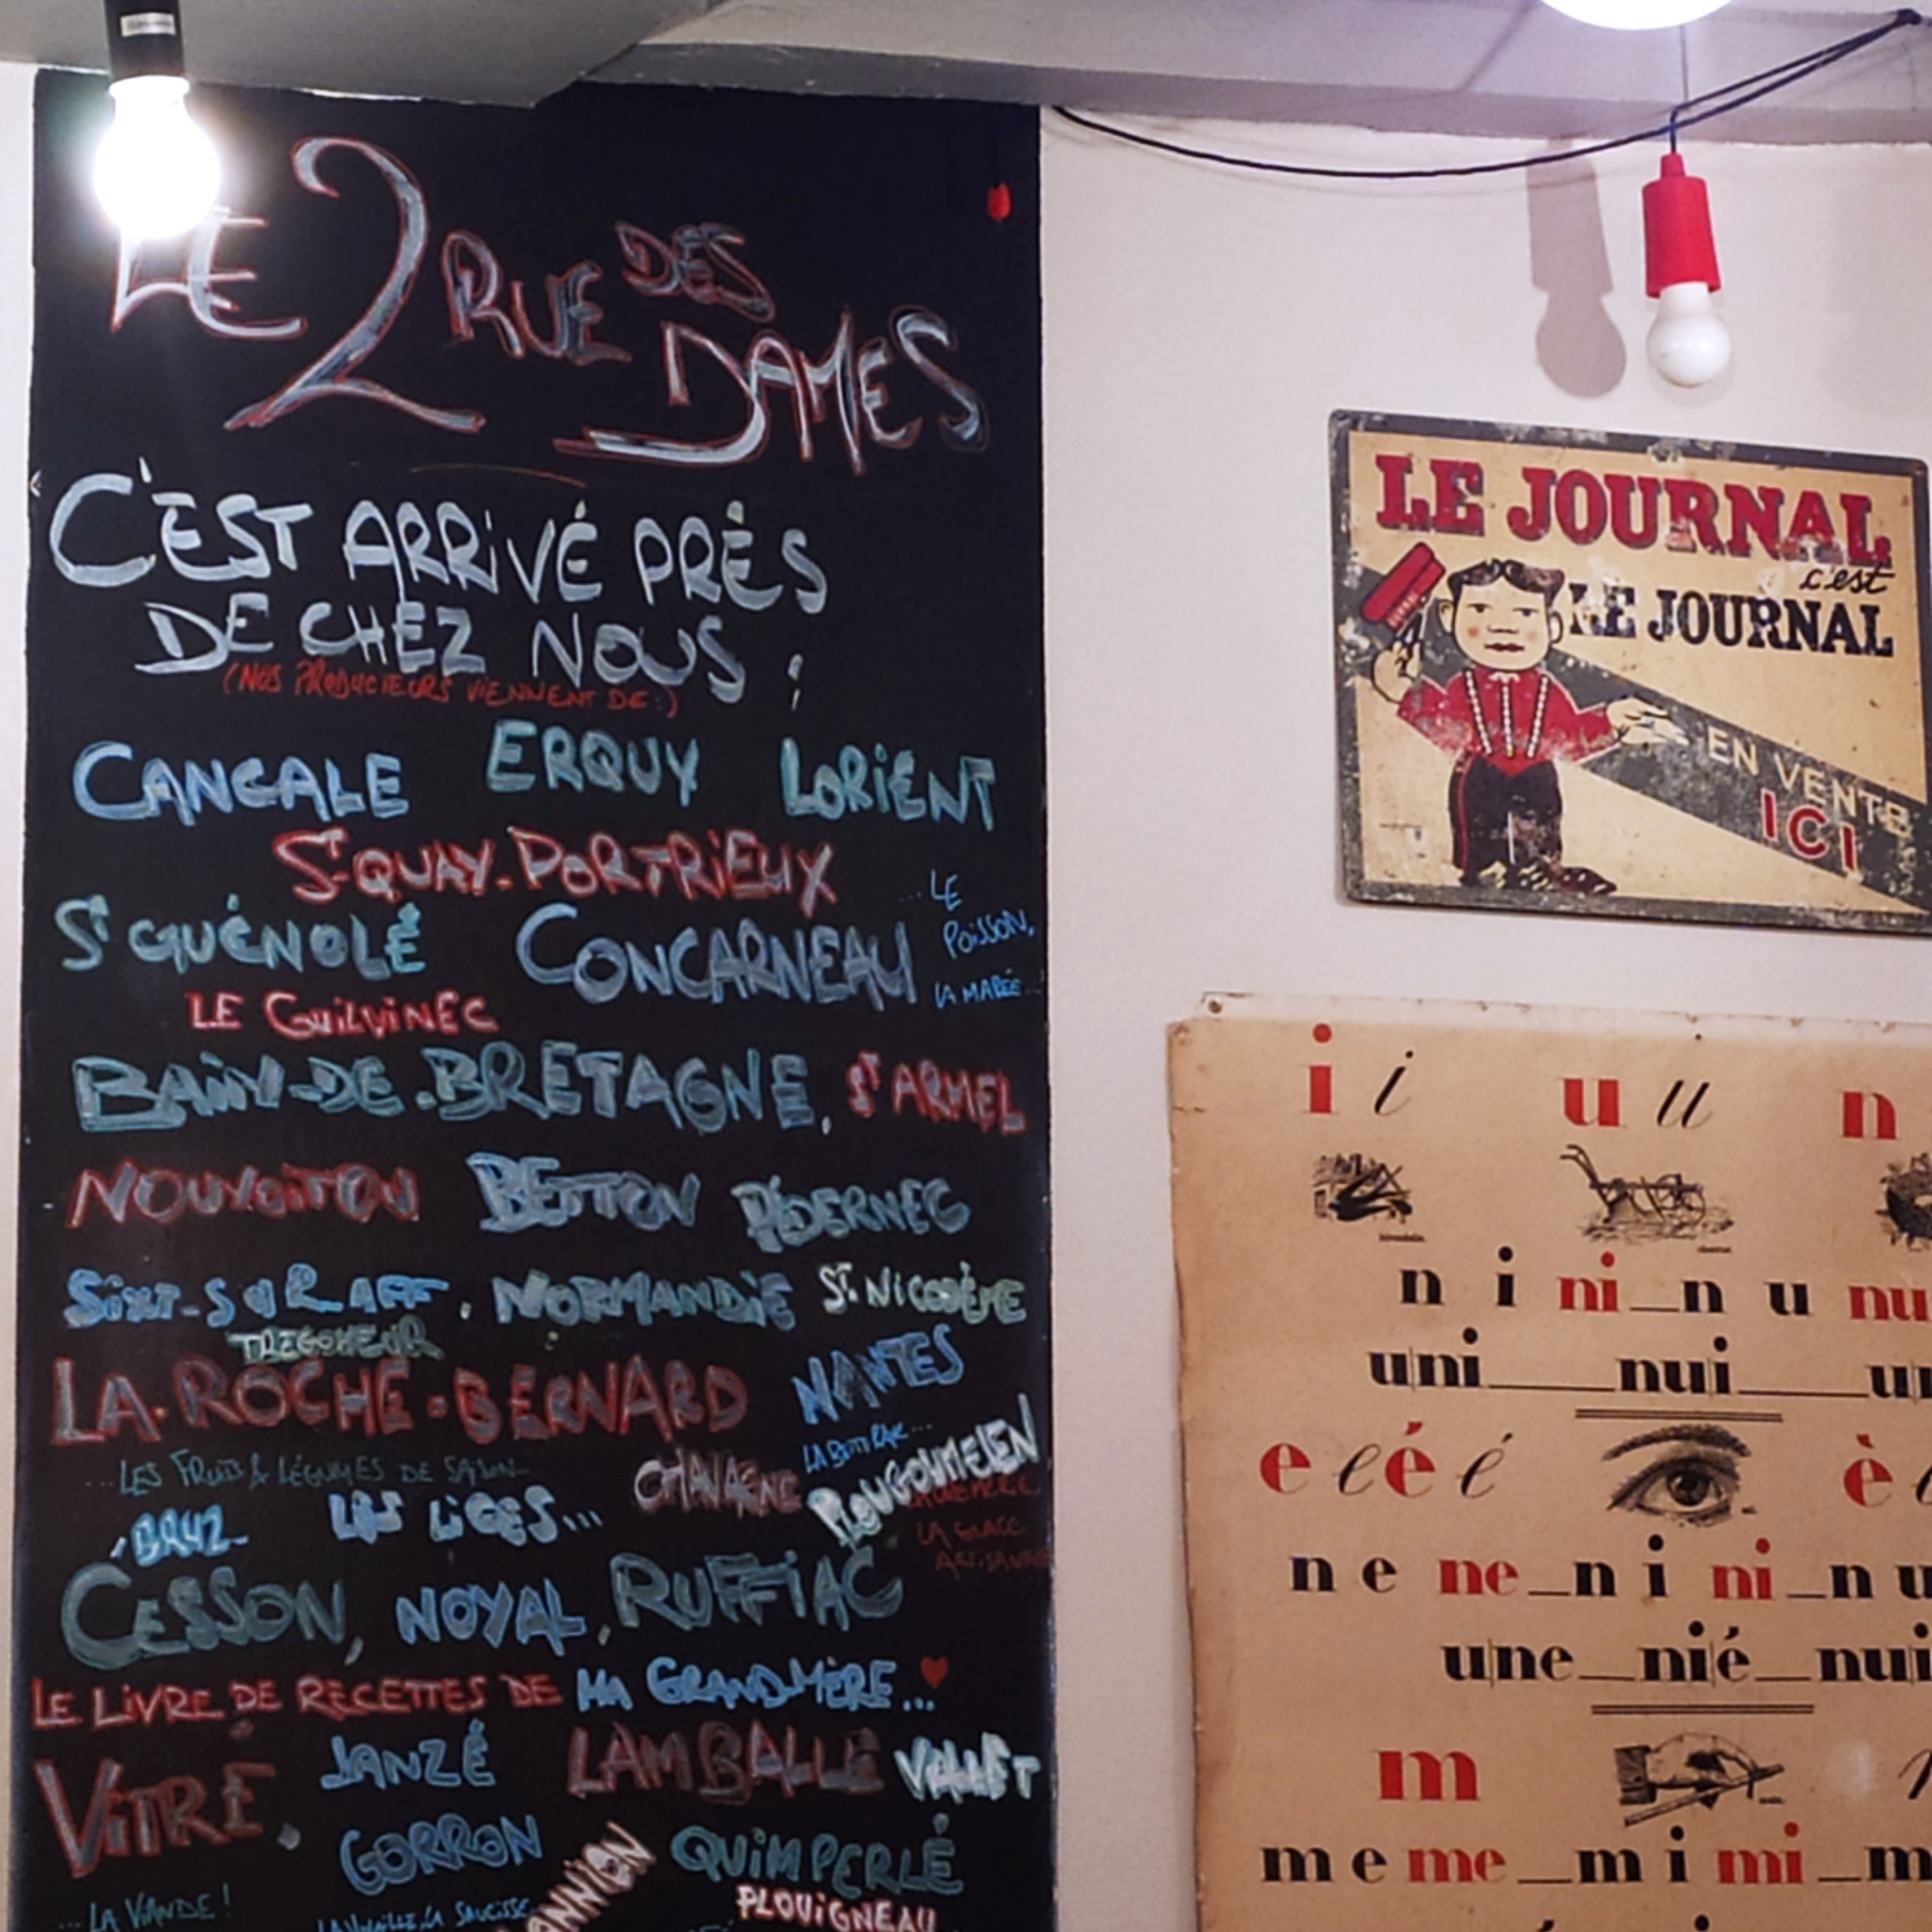 LE 2 RUE DES DAMES
C'EST ARRIVÉ PRÈS
DE CHEZ NOUS :
(NOS PRODUCTEURS VIENNENT DE :)
CANCALE ERQUY LORIENT
ST-QUAY-PORTRIEUX
...LE
POISSON,
LA MARÉE...
ST GUÉNOLÉ CONCARNEAU
LE GUILVINEC
BAIN-DE-BRETAGNE, ST ARMEL
NOUVOITOU BETTON PÉDERNEC
SIXT-SUR AFF, NORMANDIE ST NICODÈME
TREGOMEUR
LA-ROCHE-BERNARD NANTES
...LES FRUITS & LÉGUMES DE SAISON
BRUZ LES LICES... PLOUGOUMELEN
LA GLACE
CESSON, NOYAL, RUFFIAC
LE LIVRE DE RECETTES DE MA GRAND-MÈRE...
VITRÉ, JANZÉ LAMBALLE VALLET
GORRON QUIMPERLÉ
...LA VIANDE !
PLOUIGNEAU
LE JOURNAL
c'est
LE JOURNAL
EN VENTE
ICI
i i u u n
n i ni_n u nu
uni nui
e e é é è
n e ne_n i ni_n u
une_nié_nui
m
m e me_m i mi_m